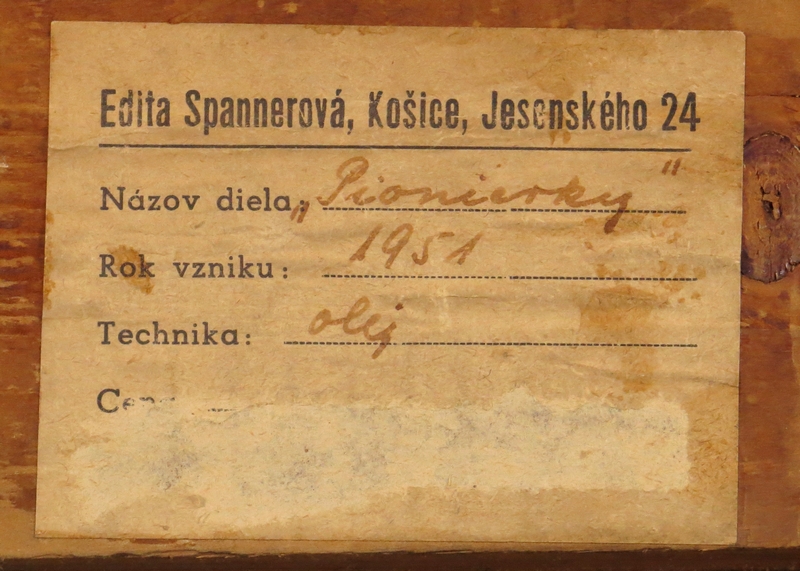 Edita Spannerová, Košice, Jesenského 24
Názov diela: „Pionierky"
Rok vzniku: 1951
Technika: olej